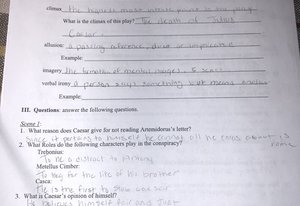 climax the highest most intense point in the play
What is the climax of this play? The death of Julius
Caesar.
allusion: a passing reference, direct or implicated
Example:
imagery the formation of mental images, 5 senses
verbal irony a person says something but means another
Example:
III. Questions: answer the following questions.
Scene I:
1. What reason does Caesar give for not reading Artemidorus's letter?
Since it pertains to himself he all he cares about is
2. What Roles do the following characters play in the conspiracy? rome
Trebonius:
To be a distract to Antony
Metellus Cimber:
To beg for the life of his brother
Casca:
He is the first to stab Caesar
3. What is Caesar's opinion of himself?
He believes himself fair and Just